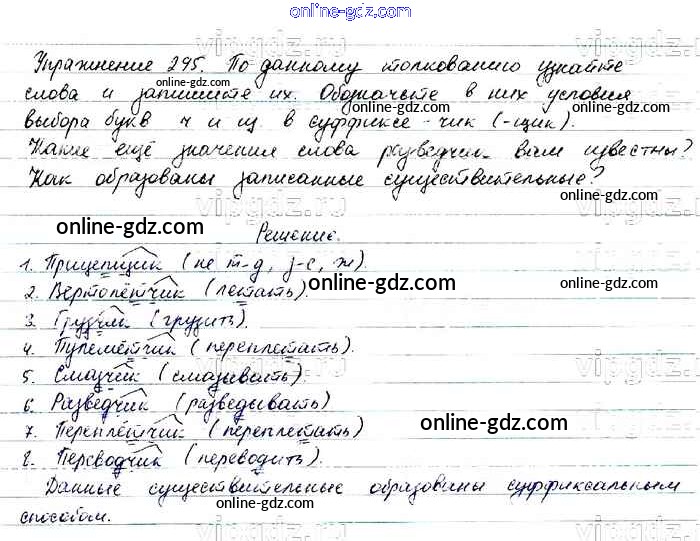 online-gdz.com
Упражнение 295. По данному толкованию узнайте
слова и запишите их. Обозначьте в них условия
выбора букв ч и щ в суффиксе -чик (-щик).
Какие ещё значения слова разведчик вам известны?
Как образованы записанные существительные?
Решение.
1. Прицепщик (не т-д, з-с, ж).
2. Вертолётчик (летать).
3. Грузчик (грузить).
4. Пулемётчик (переплетать).
5. Смазчик (смазывать).
6. Разведчик (разведывать)
7. Переплётчик (переплетать).
8. Переводчик (переводить).
Данные существительные образованы суффиксальным
способом.
online-gdz.com
online-gdz.com
online-gdz.com
online-gdz.com
online-gdz.com
online-gdz.com
online-gdz.com
online-gdz.com
online-gdz.com
vipgdz.ru
vipgdz.ru
vipgdz.ru